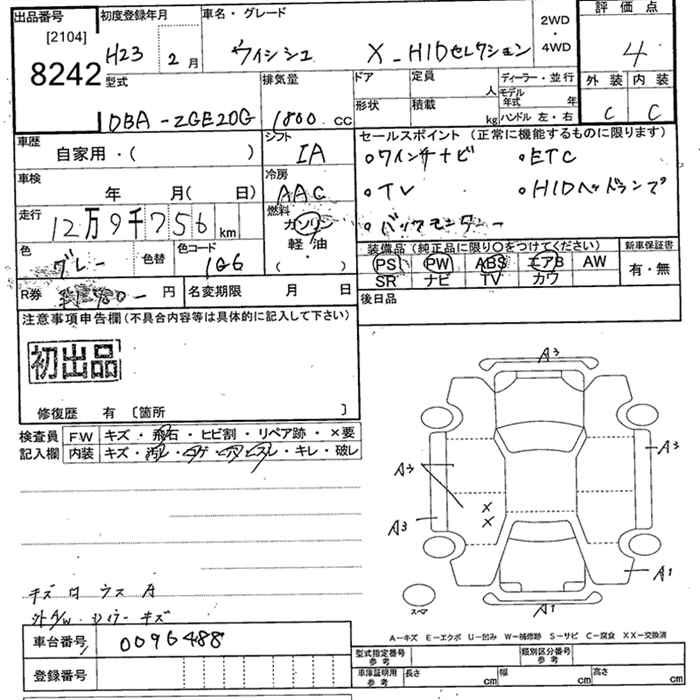 出品番号 初度登録年月 車名・グレード 2WD・4WD 評価点
[2104]
8242 H23 2月 ウィシュ X-HIDセレクション 4
型式 排気量 ドア 定員 人 ディーラー・並行 外装 内装
形状 積載 kg モデル年式 年
DBA-ZGE20G 1800 cc ハンドル 左・右 C C
車歴 シフト セールスポイント (正常に機能するものに限ります)
自家用・( ) IA ・ワインサナビ ・ETC
車検 冷房 ・TV ・HIDヘッドランプ
年 月( 日) AAC ・バックモニター
走行 燃料
12万9千756 km ガソリン
軽・油
( )
色 色替 色コード 装備品 (純正品に限り〇をつけてください) 新車保証書
グレー 1G6 PS PW ABS エアB AW 有・無
SR ナビ TV カワ
R券 円 名変期限 月 日 後日品
注意事項申告欄(不具合内容等は具体的に記入して下さい)
初出品
修復歴 有 〔箇所 〕
検査員 FW キズ・飛石・ヒビ割・リペア跡・×要
記入欄 内装 キズ・汚レ・コゲ・穴・スレ・キレ・破レ
A3
A3
A3
A3
×
×
A1
A1
キズ
キズ
車台番号 0096488
登録番号
A-キズ E-エクボ U-凹み W-補修跡 S-サビ C-腐食 XX-交換済
型式指定番号 参考 類別区分番号 参考
車庫証明用 参考 長さ cm 幅 cm 高さ cm